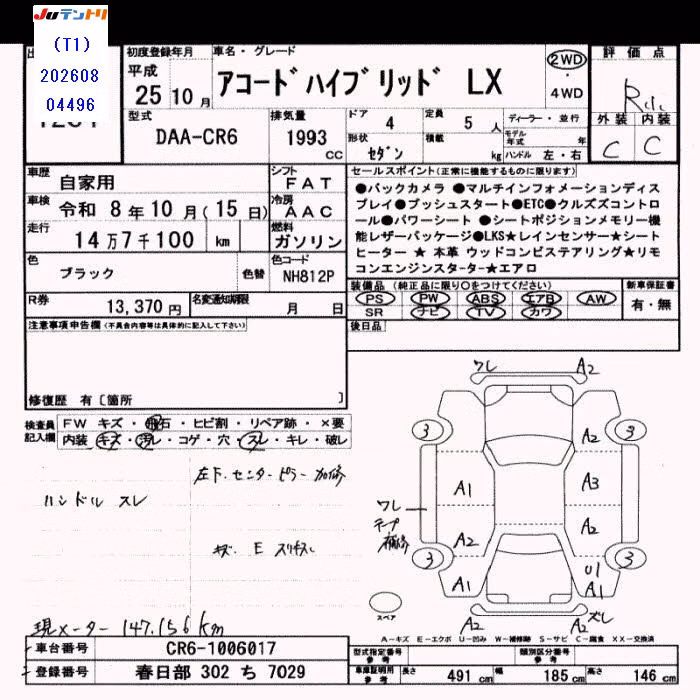 JUテントリ
(T1)
202608
04496
初度登録年月
平成
25年10月
車名・グレード
アコードハイブリッド LX
2WD
・
4WD
評価点
外装 内装
C C
型式
DAA-CR6
排気量
1993
cc
ドア
4
形状
セダン
定員
5人
積載
kg
ディーラー・並行
モデル年式 年
ハンドル 左・右
車歴
自家用
シフト
FAT
車検
令和 8年10月(15日)
冷房
AAC
走行
14万7千100 km
燃料
ガソリン
色
ブラック
色替
色コード
NH812P
R券
13,370円
名変通知期限
月 日
セールスポイント(正常に機能するものに限ります)
●バックカメラ ●マルチインフォメーションディス
プレイ●プッシュスタート●ETC●クルズズコントロ
ール●パワーシート ●シートポジションメモリー機
能レザーパッケージ●LKS★レインセンサー★シート
ヒーター ★ 本革 ウッドコンビステアリング★リモ
コンエンジンスターター★エアロ
装備品(純正品に限り○をつけてください)
PS PW ABS エアB AW
SR ナビ TV カワ
新車保証書
有・無
後日品
注意事項申告欄(不具合内容等は具体的に記入して下さい)
修復歴 有〔箇所 〕
検査員
記入欄
FW キズ・飛石・ヒビ割・リペア跡・×要
内装 キズ・汚レ・コゲ・穴・スレ・キレ・破レ
左下.センターピラー 加修
ハンドル スレ
E
現メーター 147,156km
ワレ
A2
3
3
A2
A1
A3
ワレ
テープ
補修
A2
A2
3
3
U1
A1
A1
A2
A2
ズレ
スペア
A-キズ E-エクボ U-凹み W-補修跡 S-サビ C-腐食 XX-交換済
車台番号
CR6-1006017
登録番号
春日部 302 ち 7029
型式指定番号
参考
類別区分番号
参考
車庫証明用
参考
長さ 491cm
幅 185cm
高さ 146cm